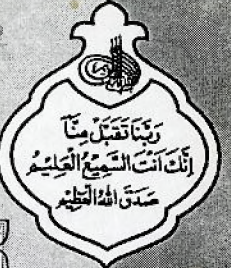 رَبَّنَا تَقَبَّلْ مِنَّا
إِنَّكَ أَنْتَ السَّمِيعُ الْعَلِيمُ
صَدَقَ اللهُ الْعَظِيمُ